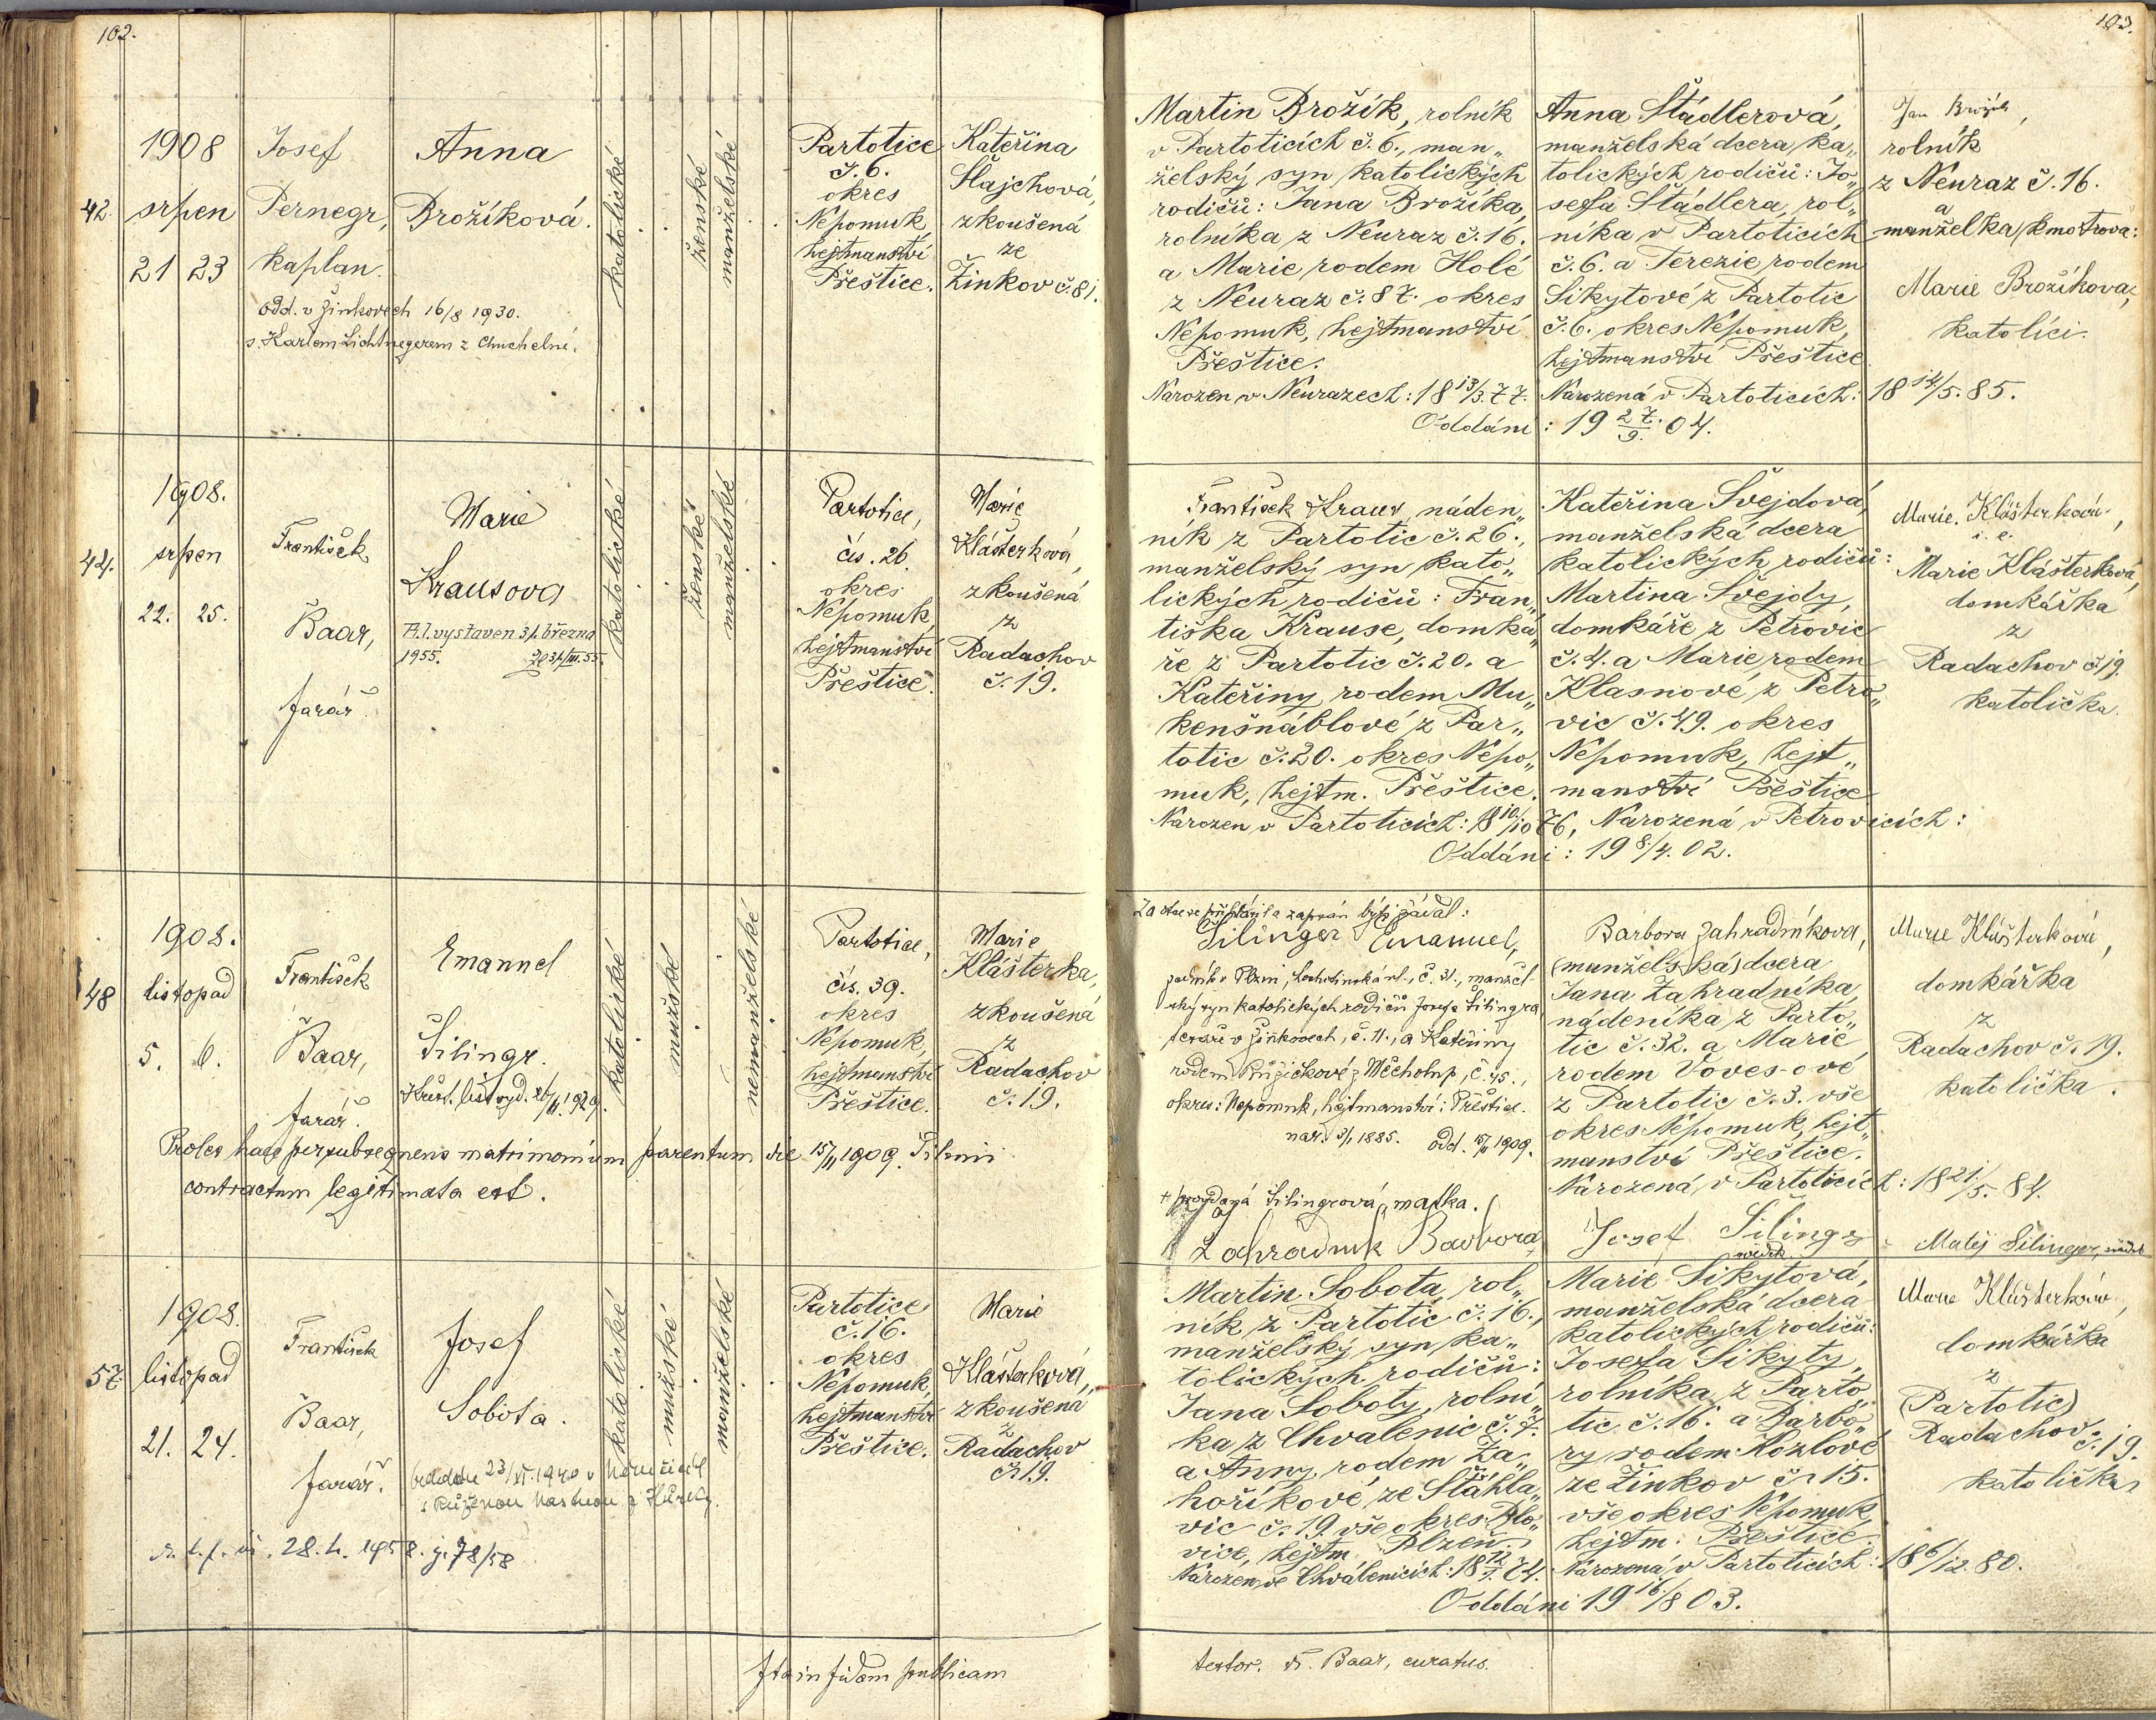 102.
1908
42.
srpen
21 23
Josef
Pernegr,
kaplan.
Anna
Brožíková.
odd. v Žinkovech 16/8 1930.
s. Karlem Lichtnegerem z Chuchelné.
katolické
ženské
manželské
Partotice
č. 6.
okres
Nepomuk
hejtmanství
Přeštice.
Kateřina
Šlajchová,
zkoušená
ze
Žinkov č. 81.
1908.
44.
srpen
22. 25.
František
Baar,
farář.
Marie
Krausova
vystaven 31. března
1955.
katolické
ženské
manželské
Partotice,
čís. 26.
okres
Nepomuk,
hejtmanství
Přeštice.
Marie
Klášterková,
zkoušená
z
Radachov
č. 19.
1908.
48
listopad
5. 6.
František
Baar,
farář.
Emanuel
Šilingr.
katolické
mužské
nemanželské
Partotice,
čís. 39.
okres
Nepomuk,
hejtmanství
Přeštice.
Marie
Klášterka,
zkoušená
z
Radachov
č. 19.
Proles haec per subsequens matrimonium parentum die 15/II 1909 Pilsnii
contractum legitimata est.
1908.
57.
listopad
21. 24.
František
Baar,
farář.
Josef
Sobota.
28. 4. 1958. j. 78/58
katolické
mužské
manželské
Partotice
č. 16.
okres
Nepomuk,
hejtmanství
Přeštice.
Marie
Klášterková,
zkoušená
z
Radachov
č. 19.
Ita in fidem publicam
103.
Martin Brožík, rolník
v Partoticích č. 6., man„
želský syn katolických
rodičů: Jana Brožíka,
rolníka z Neuraz č. 16.
a Marie rodem Holé
z Neuraz č. 87. okres
Nepomuk, hejtmanství
Přeštice.
Narozen v Neurazech: 18 13/3. 77.
Anna Štádlerová,
manželská dcera ka„
tolických rodičů: Jo„
sefa Štádlera, rol„
níka v Partoticích
č. 6. a Terezie rodem
Sikytové z Partotic
č. 6. okres Nepomuk,
hejtmanství Přeštice
Narozená v Partoticích: 18 14/5. 85.
Oddáni: 19 27./9. 04.
Jan Brožík,
rolník
z Neuraz č. 16.
a
manželka kmotrova:
Marie Brožíkova,
katolíci.
František Kraus, náden„
ník z Partotic č. 26.,
manželský syn kato„
lických rodičů: Fran„
tiška Krause, domká„
ře z Partotic č. 20. a
Kateřiny rodem Mu„
kenšnáblové z Par„
totic č. 20. okres Nepo„
muk, hejtm. Přeštice.
Narozen v Partoticích: 18 10/10 76,
Kateřina Švejdová,
manželská dcera
katolických rodičů:
Martina Švejdy,
domkáře z Petrovic
č. 4. a Marie rodem
Klasnové z Petro„
vic č. 49. okres
Nepomuk, hejt„
manství Přeštice
Narozená v Petrovicích:
Oddáni: 19 8/4. 02.
Marie Klášterková,
i. e.
Marie Klášterková,
domkářka
z
Radachov č. 19.
katolička.
Za otce se přihlásil a zapsán býti žádal:
Šilinger Emanuel,
v Plzni, Lochotínská ul., č. 31., manžel
ský syn katolických rodičů Josefa Šilingra
v Žinkovech, č. 11., a Kateřiny
rodem Růžičkové z Měcholup, č. 45.,
okres: Nepomuk, hejtmanství: Přeštice.
nar. 3/1 1885. odd. 15/II 1909.
+ provdaná Šilingrová, matka.
Zahradnik Barbora
Barbora Zahradníkova,
(manželská) dcera
Jana Zahradníka,
nádeníka z Parto„
tic č. 32. a Marie
rodem Voves-ové
z Partotic č. 3. vše
okres Nepomuk, hejt„
manství Přeštice.
Narozená v Partoticích: 18 21/5. 84.
Josef Šilingr
svědek
Matěj Šilinger, svědek
Marie Klášterková,
domkářka
z
Radachov č. 19.
katolička.
Martin Sobota, rol„
ník z Partotic č. 16.,
manželský syn ka„
tolických rodičů:
Jana Soboty, rolní„
ka z Chválenic č. 7.
a Anny rodem Za„
hoříkové ze Šťáhla„
vic č. 19 vše okres Blo„
vice, hejtm. Plzeň.
Narozen ve Chválenicích: 18 74.
Marie Sikytová,
manželská dcera
katolických rodičů:
Josefa Sikyty,
rolníka z Parto„
tic č. 16. a Barbo„
ry rodem Kozlové
ze Žinkov č. 15.
vše okres Nepomuk,
hejtm. Přeštice.
Narozená v Partoticích: 18 6/12. 80.
Oddáni 19 16/8 03.
Marie Klášterková,
domkářka
z
(Partotic)
Radachov č. 19.
katolička
testor. Fr. Baar, curatus.